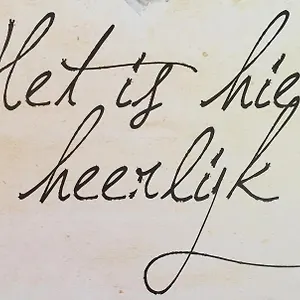 Het is hie
heerlijk